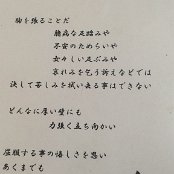 胸を張ることだ
臆病な足踏みや
不安のためらいや
女々しい足ぶみや
哀れみを乞う訴えなどでは
決して苦しみを拭い去る事はできない
どんなに厚い壁にも
力強く立ち向かい
屈服する事の悔しさを思い
あくまでも